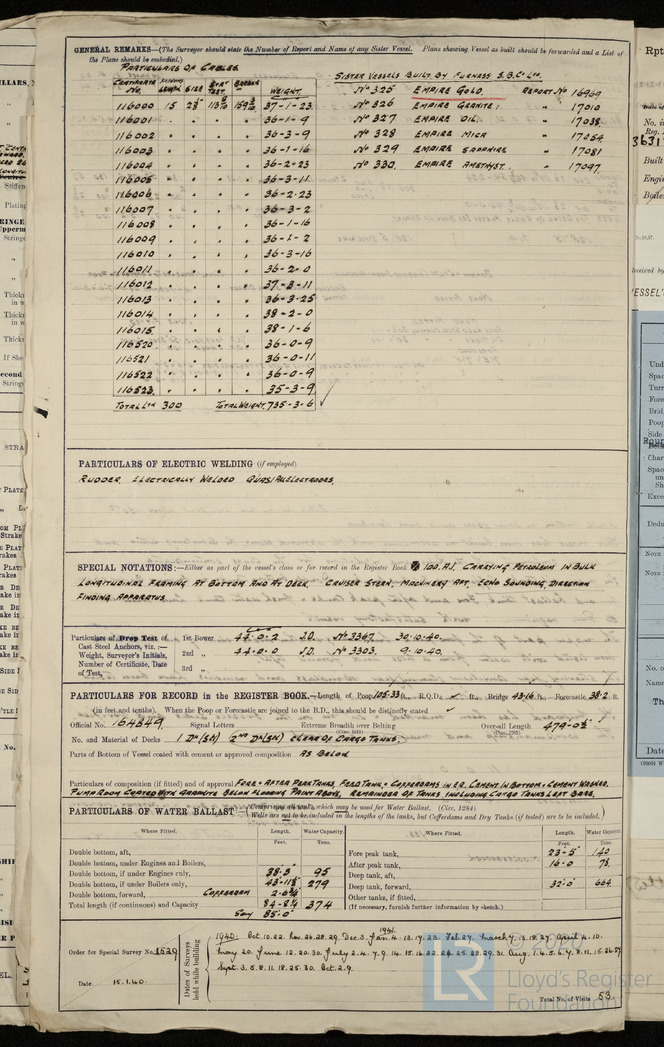 GENERAL REMARKS—(The Surveyor should state the Number of Report and Name of any Sister Vessel. Plans showing Vessel as built should be forwarded and a List of the Plans should be embodied.)
PARTICULARS OF CABLES
CERTIFICATE No. LENGTH SIZE WEIGHT.
116000 15 37-1-23
116001 " " " " 36-1-9
116002 " " " " 36-3-9
116003 " " " " 36-1-16
116004 " " " " 36-2-23
116005 " " " " 36-3-11
116006 " " " " 36-2-23
116007 " " " " 36-3-2
116008 " " " " 36-1-16
116009 " " " " 36-1-2
116010 " " " " 36-3-16
116011 " " " " 36-2-0
116012 " " " " 37-3-11
116013 " " " " 36-3-25
116014 " " " " 38-2-0
116015 " " " " 38-1-6
116520 " " " " 36-0-9
116521 " " " " 36-0-11
116522 " " " " 36-0-9
116523 " " " " 35-3-9
TOTAL LTH 300 TOTAL WEIGHT. 735-3-6 ✓
SISTER VESSELS BUILT BY FURNESS S.B. Co Ltd.
No 325 EMPIRE GOLD. REPORT No 16969
No 326 EMPIRE GRANITE. " 17010
No 327 EMPIRE OIL. " 17038
No 328 EMPIRE MICA " 17054
No 329 EMPIRE SAPPHIRE " 17081
No 330. EMPIRE AMETHYST. " 17097
PARTICULARS OF ELECTRIC WELDING (if employed)
RUDDER, ELECTRICALLY WELDED QUASI ARC ELECTRODES.
SPECIAL NOTATIONS:—Either as part of the vessel's class or for record in the Register Book 100.A.1. CARRYING PETROLEUM IN BULK
LONGITUDINAL FRAMING AT BOTTOM AND AT DECK. CRUISER STERN, MACHINERY AFT, ECHO SOUNDING, DIRECTION
FINDING APPARATUS.
Particulars of Drop Test of Cast Steel Anchors, viz.:— Weight, Surveyor's Initials, Number of Certificate, Date of Test,
1st Bower 44-0-2 J.D. No 3367. 30-10-40.
2nd " 44-0-0 J.D. No 3303. 9-10-40.
3rd "
PARTICULARS FOR RECORD in the REGISTER BOOK.—Length of Poop 105.33 ft., R.Q.D. ✓ ft., Bridge 43.16 ft., Forecastle 38.2 ft.
(in feet and tenths). When the Poop or Forecastle are joined to the B.D., this should be distinctly stated ✓
Official No. 164849 Signal Letters Extreme Breadth over Belting Over-all Length 479-0½"
No. and Material of Decks 1 DK (STL) 2ND DK (STL) CLEAR OF CARGO TANKS.
Parts of Bottom of Vessel coated with cement or approved composition AS BELOW
Particulars of composition (if fitted) and of approval FORE & AFTER PEAK TANKS, FEED TANK & COFFERDAMS IN E.R. CEMENT IN BOTTOM & CEMENT WASHED.
PUMP ROOM COATED WITH BELOW FLOORING PAINT ABOVE, REMAINDER OF TANKS INCLUDING CARGO TANKS LEFT BARE.
PARTICULARS OF WATER BALLAST:—(Comprising all tanks which may be used for Water Ballast. (Circ. 1284)
Wells are not to be included in the lengths of the tanks, but Cofferdams and Dry Tanks (if tested) are to be included.)
Where Fitted. Length. Feet. Water Capacity. Tons.
Double bottom, aft,
Double bottom, under Engines and Boilers,
Double bottom, if under Engines only, 38.3 95
Double bottom, if under Boilers only, 43-11½ 279
Double bottom, forward, COFFERDAM
Total length (if continuous) and Capacity 84-8½ 374
Say 85.0"
Where Fitted. Length. Feet. Water Capacity. Tons.
Fore peak tank, 23-5 140
After peak tank, 16-0 78
Deep tank, aft,
Deep tank, forward, 32-0 664
Other tanks, if fitted,
(If necessary, furnish further information by sketch.)
Order for Special Survey No. 1529
Date 15.1.40.
Dates of Surveys held while building
1940. Oct. 10.22. Nov. 26.28.29. Dec. 3. 1941. Jan 4.13.17.23. Feb 27. March 7.13.18.27. April 4.10.
May 20. June 12.20.30. July 2.4.7.9.14.15.16.22.24.25.28.29.31. Aug. 1.4.5.6.7.8.11.15.26.27
Sept. 3.5.8.11.18.25.30. Oct. 2.9.
Total No. of Visits 53.
© 2020
LR
Lloyd's Register
Foundation